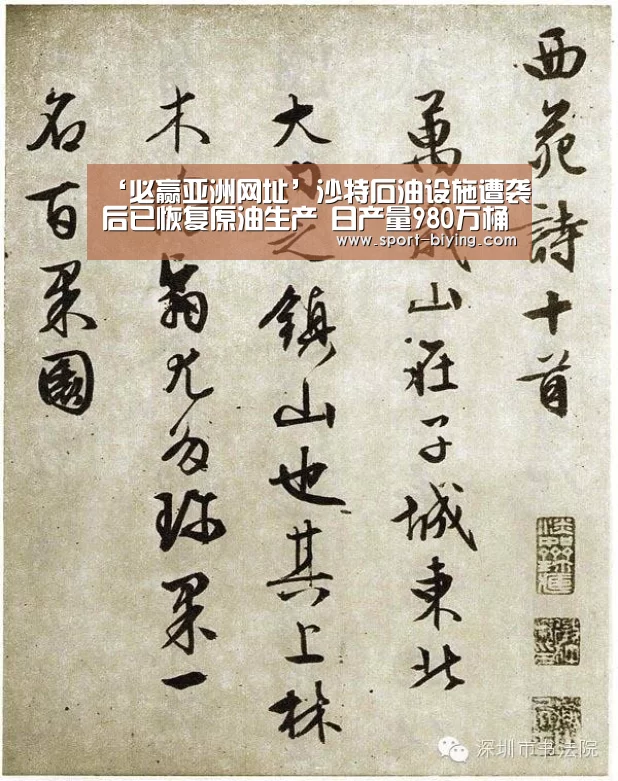 西苑詩十首
萬山在子城東北
大之鎮山也其上林
木翳尤多珍果一
名百果園
‘必赢亚洲网址’沙特石油设施遭袭
后已恢复原油生产 日产量980万桶
www.sport-biying.com
深圳市书法院